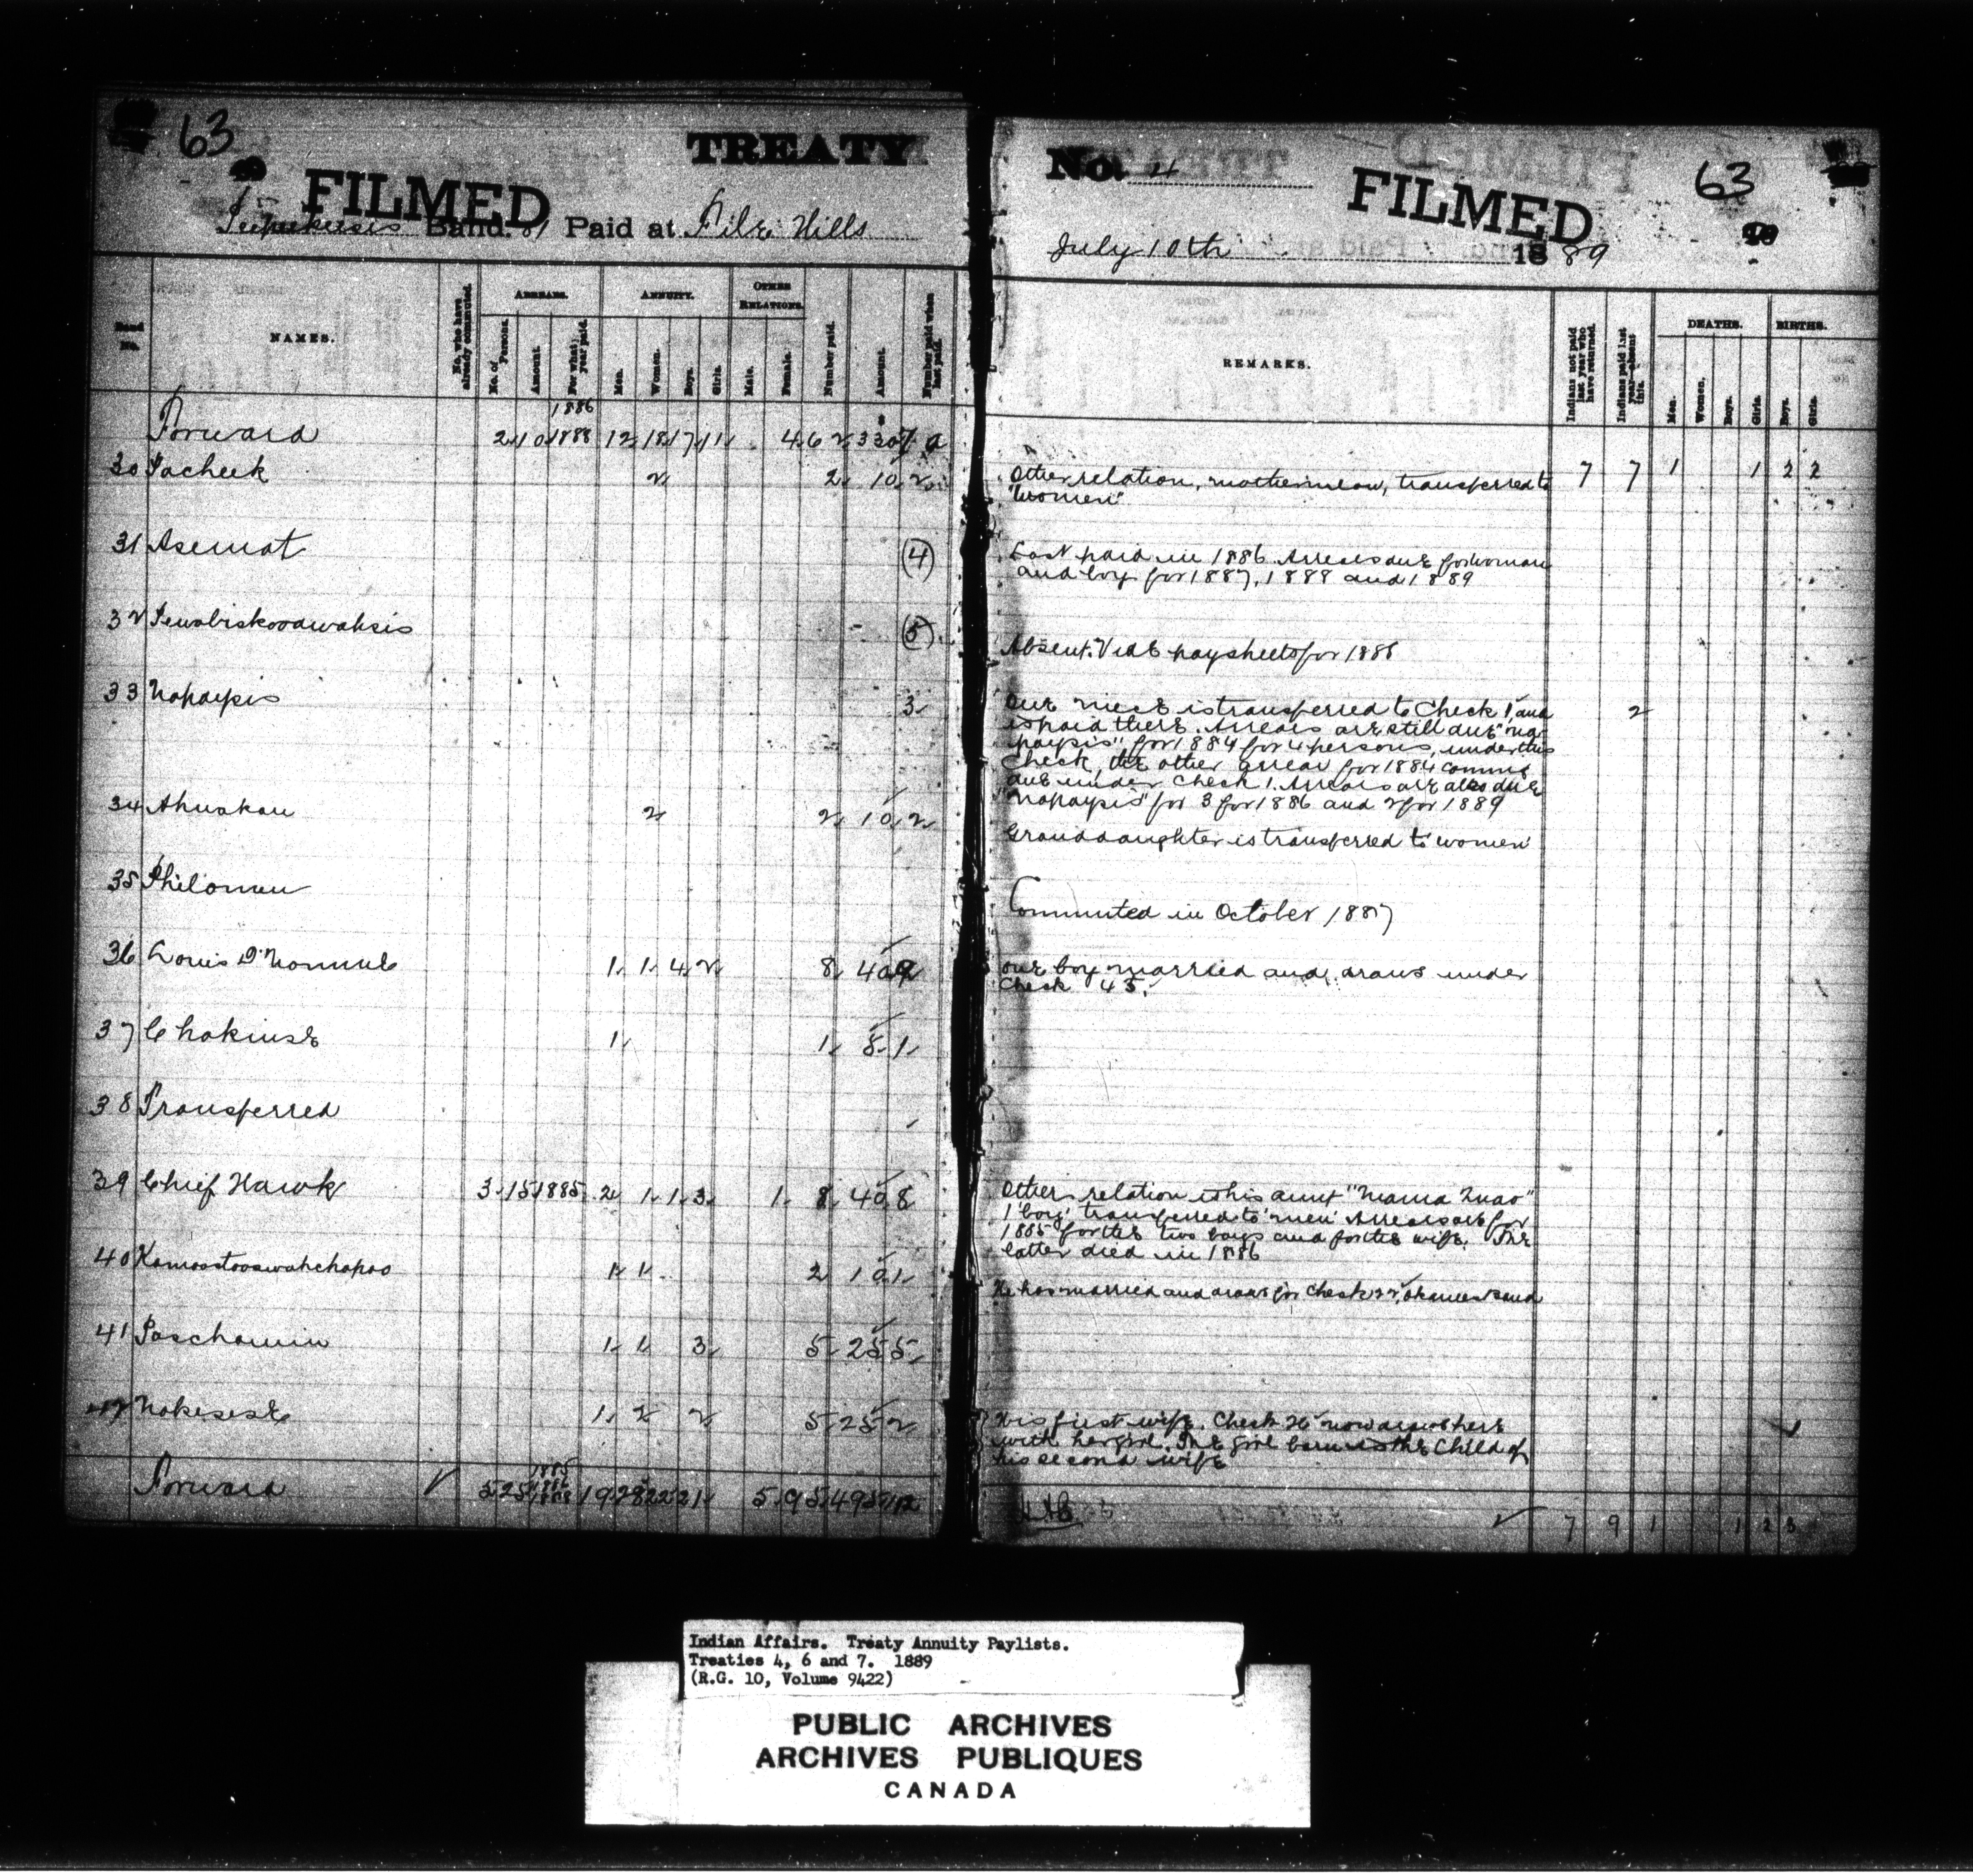 63
TREATY
FILMED
Band. 81 Paid at File Hills
No. 4
FILMED
63
July 10th 1889
Band No.
NAMES.
No. who have already commuted.
ARREARS.
No. of Persons.
Amount.
For what year paid.
ANNUITY.
Men.
Women.
Boys.
Girls.
OTHER RELATIONS.
Male.
Female.
Number paid.
Amount.
Number paid when last paid.
REMARKS.
Indians not paid last year who have returned.
Indians paid last year absent this.
DEATHS.
Men.
Women.
Boys.
Girls.
BIRTHS.
Boys.
Girls.
Forward 2 10 1886 1888 12 18 17 11 4 62
7 7 1 1 2 2
30 Pacheek 2 2 10 2
Other relation, motherinlaw, transferred to
"women"
31 Asemat (4)
Last paid in 1886 Arrears due for woman
and boy for 1887, 1888 and 1889
32 (5)
Absent. Vide paysheets for 1888
33 Napaypis 3 2
One niece is transferred to Check 1, and
is paid there. Arrears are still due "Na-
paypis" for 1884 for 4 persons, under this
Check, the other arrear for 1884 coming
due under Check 1. Arrears are also due
"Napaypis" for 3 for 1886 and 2 for 1889
34 Ahuskan 2 2 10 2
Granddaughter is transferred to 'women'
35 Philomen
Commuted in October 1887
36 Louis D'Nomme 1 1 4 2 8 40 9
One boy married and draws under
Check 45.
37 Chakinse 1 1 5 1
38 Transferred
39 Chief Hawk 3 15 1885 2 1 1 3 1 8 40 8
Other relation is his aunt
1 'boy' transferred to 'men' Arrears are for
1885 for the two boys and for the wife. The
latter died in 1886
40 Kamoostooswahchapoo 1 1 2 10 1
He has married and draws for Check 22, Okanees Band
41 Paschamin 1 1 3 5 25 5
42 Nokesese 1 2 2 5 25 2
His first wife, Check 26 now draws here
with her girl. The girl born is the Child of
his second wife
Forward 5 25 1885 1886 1888 19 28 22 21 5 95 495
7 9 1 1 2 3
Indian Affairs. Treaty Annuity Paylists.
Treaties 4, 6 and 7. 1889
(R.G. 10, Volume 9422)
PUBLIC ARCHIVES
ARCHIVES PUBLIQUES
CANADA